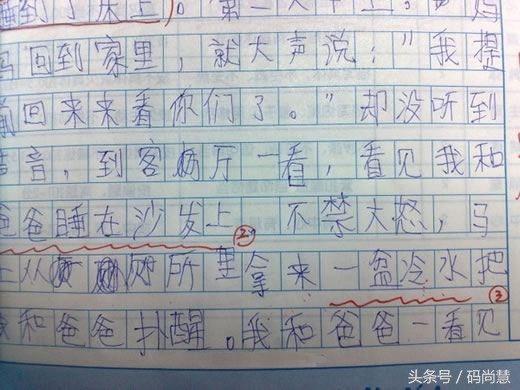 睡到了床上。第二天早上。妈
回到家里，就大声说："我提
前回来来看你们了。"却没听到
声音，到客厅一看，看见我和
爸爸睡在沙发上②不禁大怒，马
上从厕所里拿来一盆冷水把
③
我和爸爸扑醒。我和爸爸一看见
头条号／码尚慧